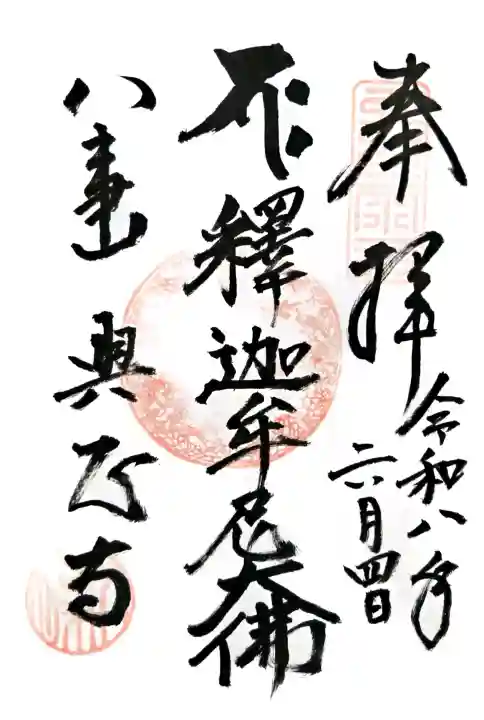 奉拝
令和八年
六月四日
釋迦牟尼大佛
八事山
興正寺